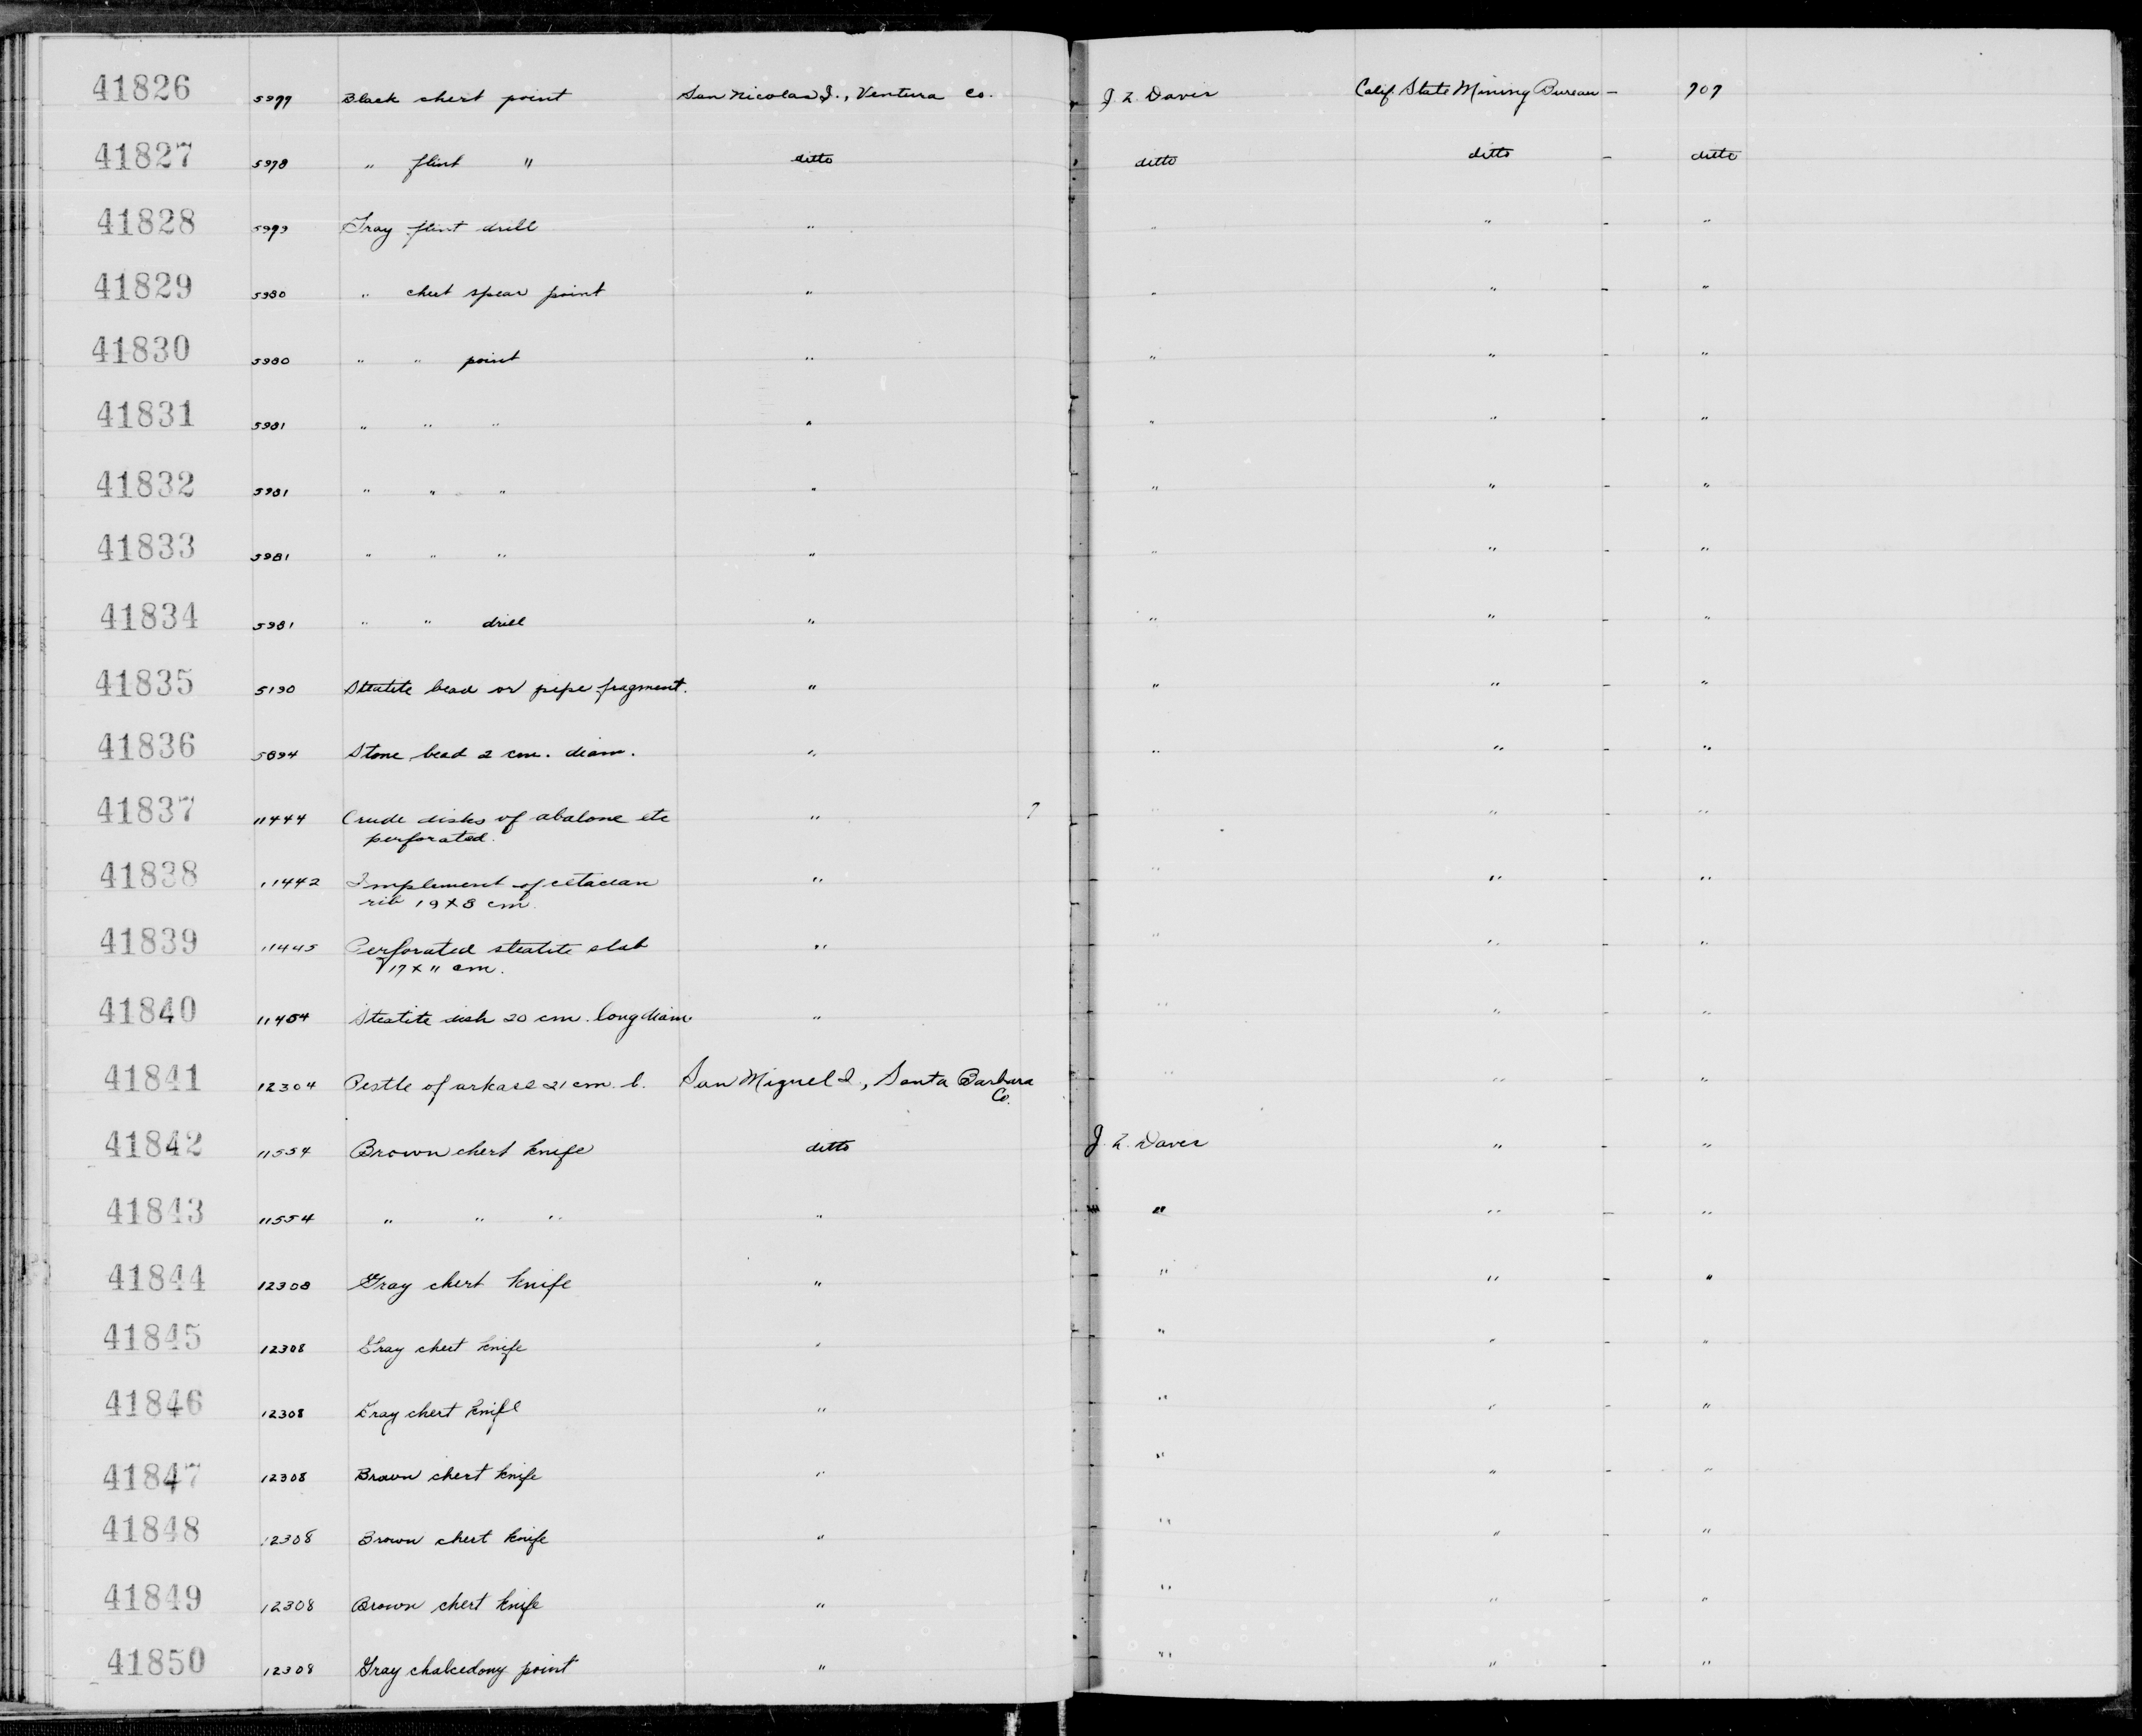 41826 5977 Black chert point San Nicolas I., Ventura Co. J. Z. Davis Calif. State Mining Bureau - 707
41827 5978 " flint " ditto ditto ditto - ditto
41828 5979 Gray flint drill " " " - "
41829 5980 " chert spear point " " " - "
41830 5980 " " point " " " - "
41831 5981 " " " " " " - "
41832 5981 " " " " " " - "
41833 5981 " " " " " " - "
41834 5981 " " drill " " " - "
41835 5190 Steatite bead or pipe fragment. " " " - "
41836 5894 Stone bead 2 cm. diam. " " " - "
41837 11444 Crude disks of abalone etc " ? " " - "
perforated.
41838 11442 Implement of cetacean " " " - "
rib 19 x 8 cm.
41839 11445 Perforated steatite slab " " " - "
17 x 11 cm.
41840 11454 Steatite dish 20 cm. long diam. " " " - "
41841 12304 Pestle of arkase 21 cm. l. San Miguel I., Santa Barbara " " - "
Co.
41842 11554 Brown chert knife ditto J. Z. Davis " - "
41843 11554 " " " " " " - "
41844 12308 Gray chert knife " " " - "
41845 12308 Gray chert knife " " " - "
41846 12308 Gray chert knife " " " - "
41847 12308 Brown chert knife " " " - "
41848 12308 Brown chert knife " " " - "
41849 12308 Brown chert knife " " " - "
41850 12308 Gray chalcedony point " " " - "